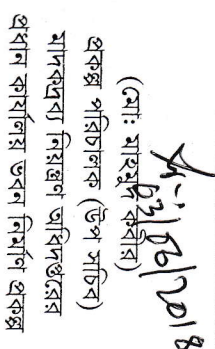 03/06/2018
(মোঃ মাহমুদ কবীর)
প্রকল্প পরিচালক (উপ সচিব)
মাদকদ্রব্য নিয়ন্ত্রণ অধিদপ্তরের
প্রধান কার্যালয় ভবন নির্মাণ প্রকল্প